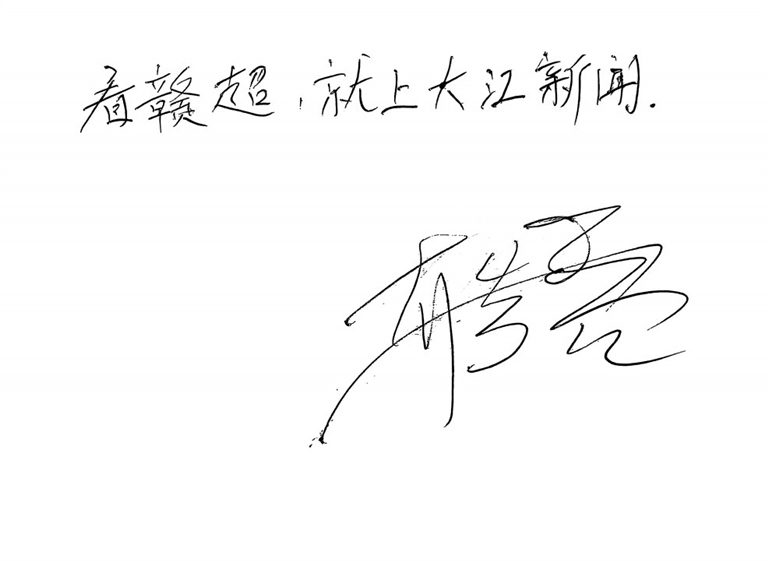 看赣超，就上大江新闻.